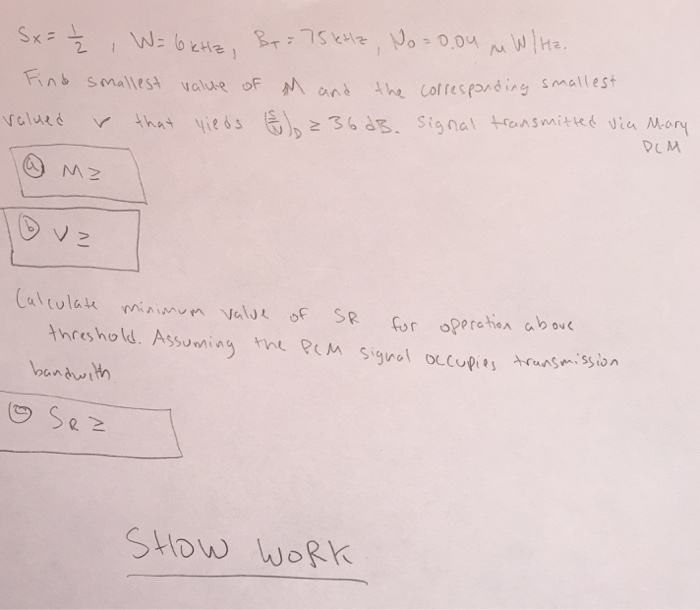 Sx = 1/2 , W = 6 kHz, BT = 75 kHz, No = 0.04 μ W/Hz.
Find smallest value of M and the corresponding smallest
valued v that yields (S/N)D ≥ 36 dB. Signal transmitted via M-ary
PCM
(a) M ≥
(b) V ≥
Calculate minimum value of SR for operation above
threshold. Assuming the PCM signal occupies transmission
bandwith
(c) SR ≥
SHOW WORK